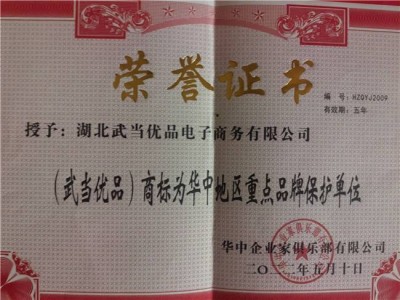 荣誉证书
编 号：HZQYJ2009
有效期：五年
授予：湖北武当优品电子商务有限公司
（武当优品）商标为华中地区重点品牌保护单位
华中企业家俱乐部有限公司
二〇一二年五月十日